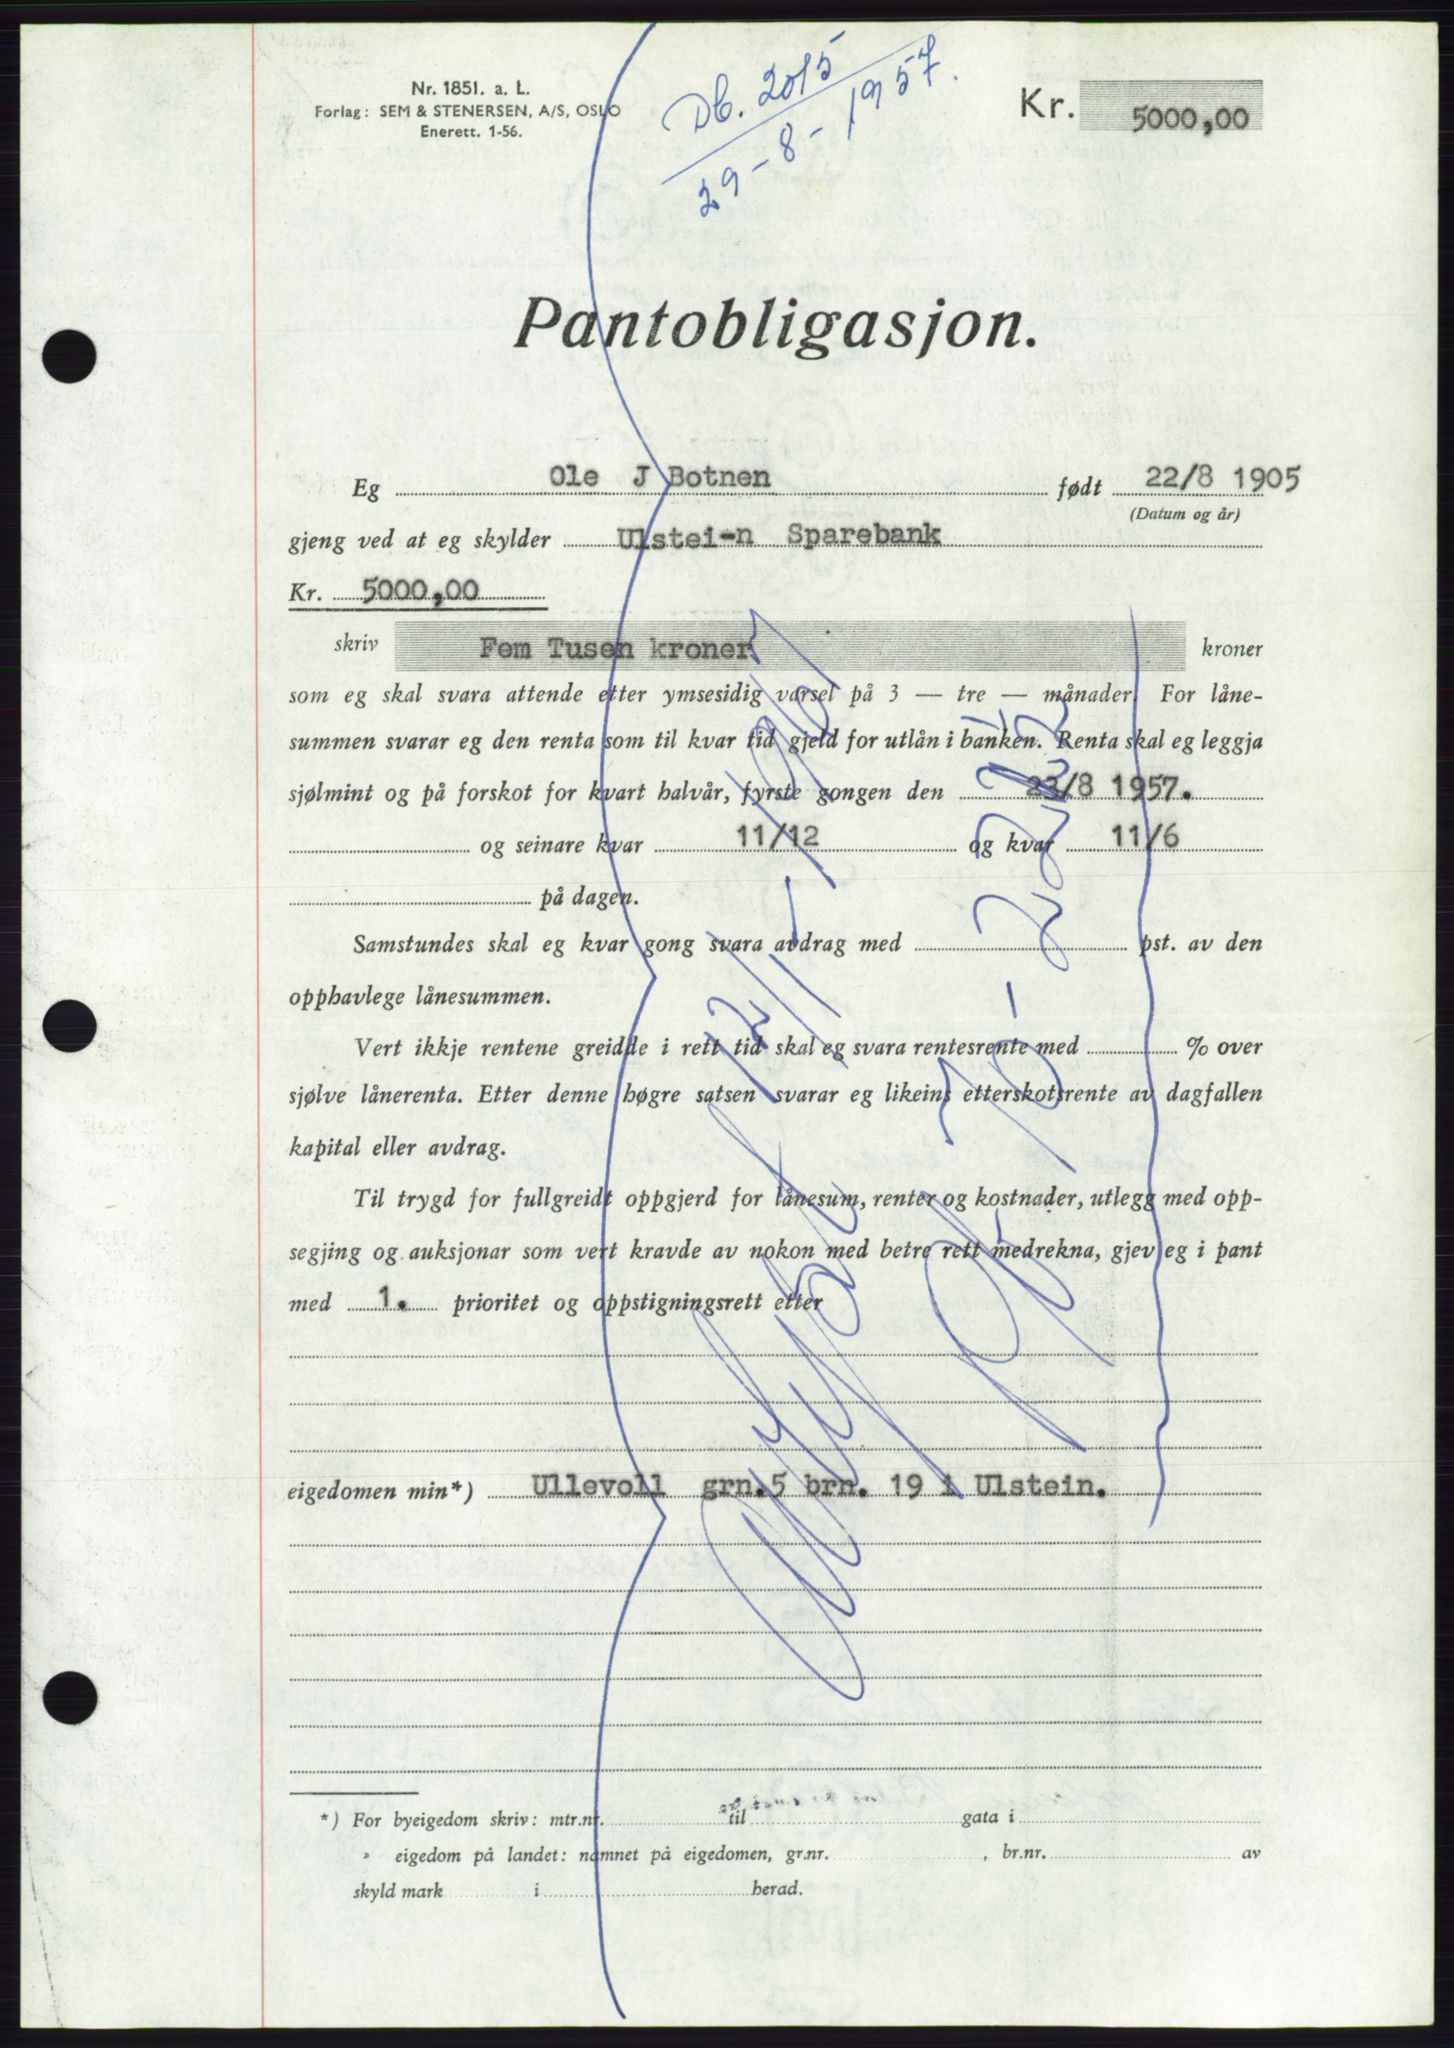 Nr. 1851. a. L.
Forlag: SEM & STENERSEN, A/S, OSLO
Enerett. 1-56.
Db. 2015
29-8-1957.
Kr. 5000,00
Pantobligasjon.
Eg Ole J Botnen født 22/8 1905
(Datum og år)
gjeng ved at eg skylder Ulstei-n Sparebank
Kr. 5000,00
skriv Fem Tusen kroner kroner
som eg skal svara attende etter ymsesidig varsel på 3 — tre — månader. For låne-
summen svarar eg den renta som til kvar tid gjeld for utlån i banken. Renta skal eg leggja
sjølmint og på forskot for kvart halvår, fyrste gongen den 23/8 1957.
og seinare kvar 11/12 og kvar 11/6
på dagen.
Samstundes skal eg kvar gong svara avdrag med pst. av den
opphavlege lånesummen.
Vert ikkje rentene greidde i rett tid skal eg svara rentesrente med % over
sjølve lånerenta. Etter denne høgre satsen svarar eg likeins etterskotsrente av dagfallen
kapital eller avdrag.
Til trygd for fullgreidt oppgjerd for lånesum, renter og kostnader, utlegg med opp-
segjing og auksjonar som vert kravde av nokon med betre rett medrekna, gjev eg i pant
med 1. prioritet og oppstigningsrett etter
eigedomen min*) Ullevoll grn.5 brn. 19 i Ulstein.
*) For byeigedom skriv: mtr.nr. til gata i
» eigedom på landet: namnet på eigedomen, gr.nr. , br.nr. av
skyld mark i herad.